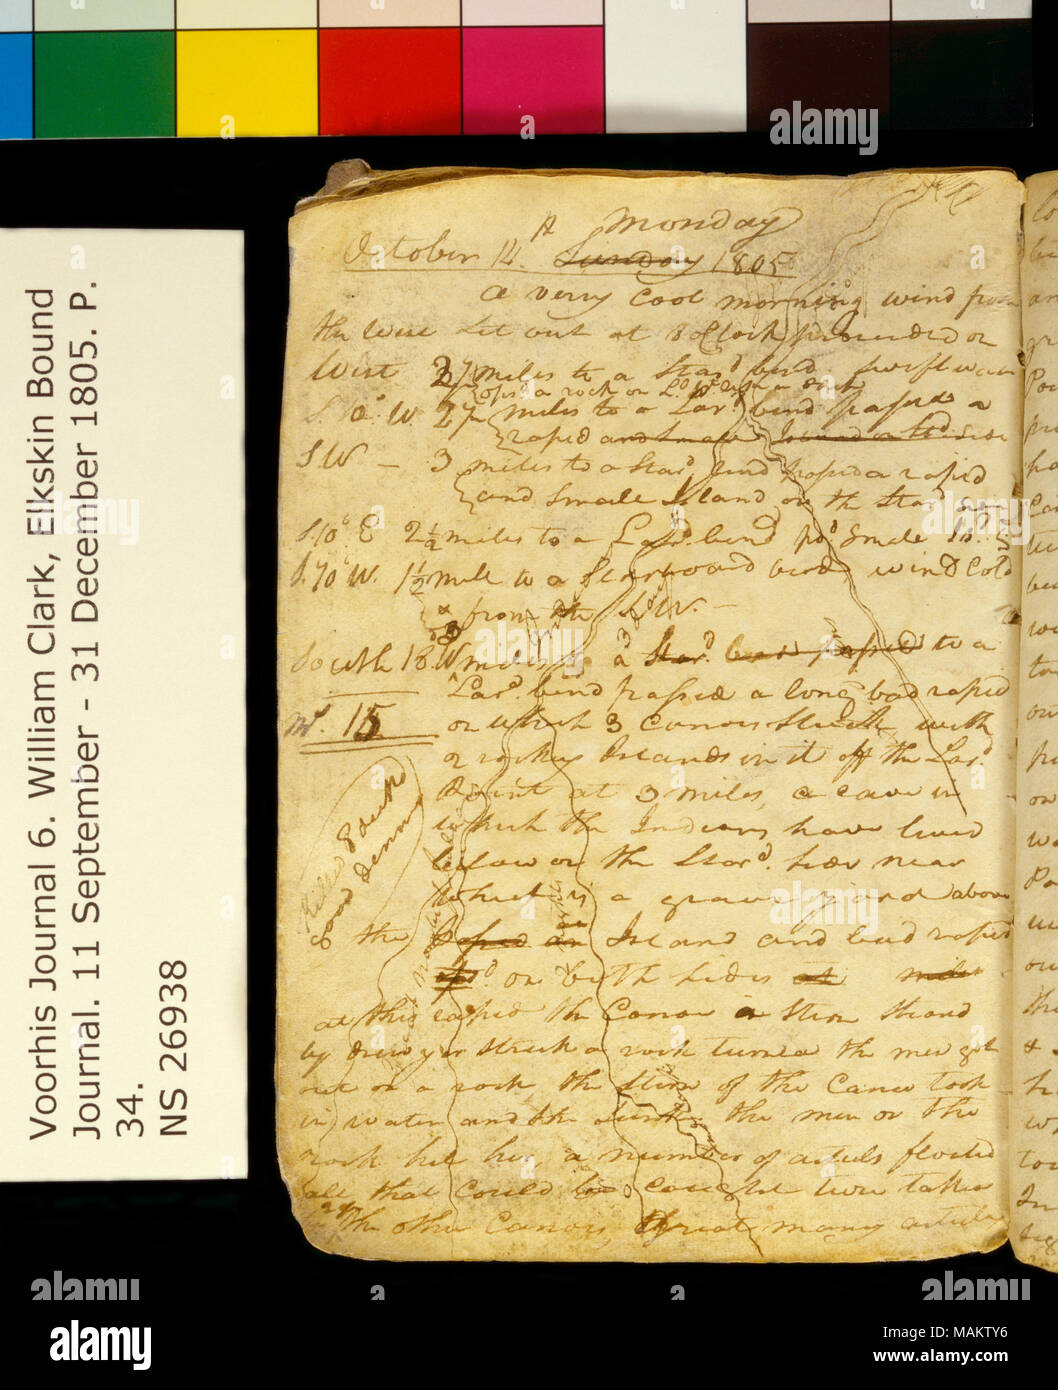 Voorhis Journal 6. William Clark, Elkskin Bound
Journal. 11 September - 31 December 1805. P.
34.
NS 26938
Monday
October 14th Sunday 1805
a verry Cool morning wind from
the West Set out at 8 oClock proceeded on
West 2½ miles to a Stard bend, Swift water
opsd. a rock on Ld. Sd.
S. 10° W. 2½ miles to a Lard. bend passed a
rapid and Small Island on Std Side
SW — 3 miles to a Stard. bend passed a rapid
and Small Island on the Stard
S. 10° E 2½ miles to a Lard. bend psd Smale Isd.
S. 70° W. 1½ mile to a Starboard bend wind Cold
from the S W. —
South 18° W miles to a Stard. bend passed to a
Lard. bend passed a long bad rapid
Ms. 15 on which 3 Canoes Struck with
2 rocky Islands in it off the Lard.
Point at 3 miles, a cave in
which the Indians have lived
below on the Stard. Side near
which is a grave yard above
the Passed an Island and bad rapid
on both Sides
at this rapid the Canoe a Stern Steared
by drewyer Struck a rock turned the men got
out on a rock the Stern of the Canoe took
in water and She Sunk, the men on the
rock hel her, a number of articles floated
all that Could be Cought were taken
by the other Canoes, Great many articles
Killed 8 ducks
good dinner
a alamy
alamy
Image ID: MAKTY6
www.alamy.com